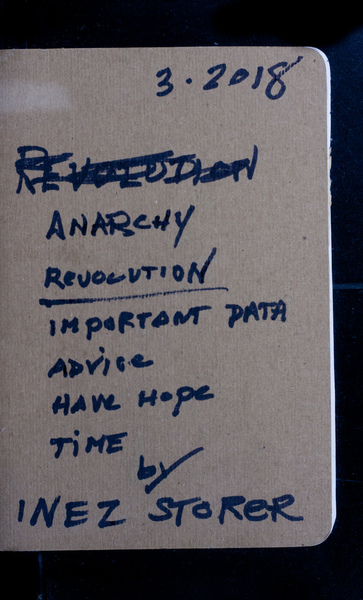 3.2018
REVOLUTION
ANARCHY
REVOLUTION
IMPORTANT DATA
ADVICE
HAVE HOPE
TIME
by
INEZ STORER